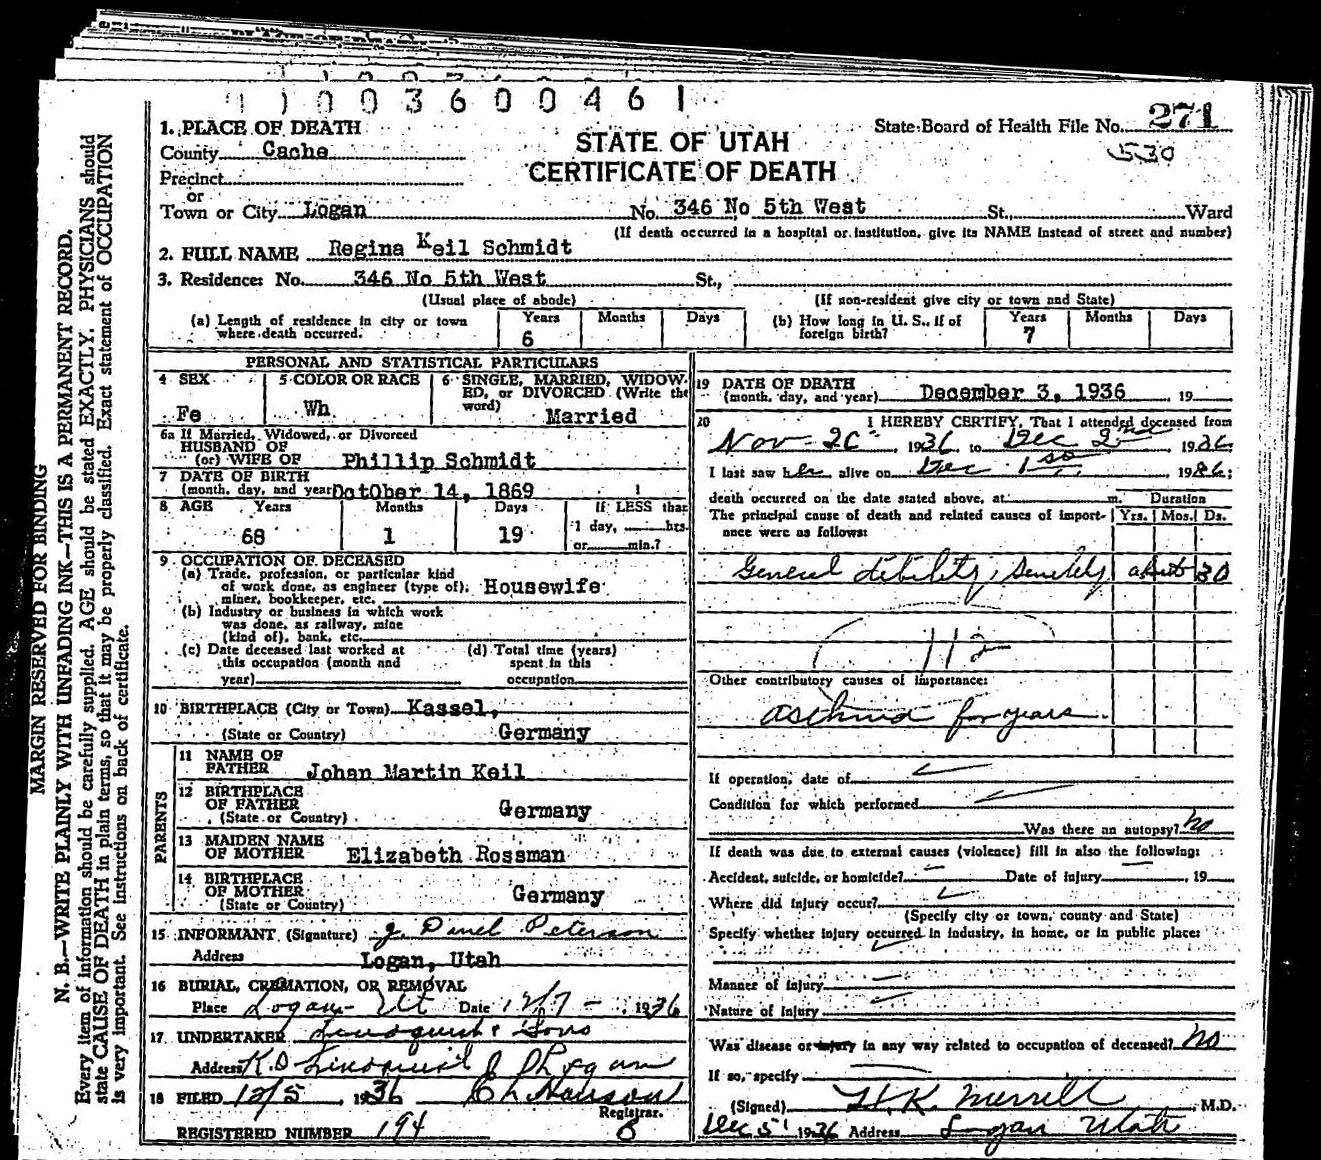 0 0 3 6 0 0 4 6 1
1. PLACE OF DEATH
County Cache
Precinct
or
Town or City Logan
STATE OF UTAH
CERTIFICATE OF DEATH
State Board of Health File No. 271
530
No. 346 No 5th West St., Ward
(If death occurred in a hospital or institution, give its NAME instead of street and number)
2. FULL NAME Regina Keil Schmidt
3. Residence: No. 346 No 5th West St.,
(Usual place of abode) (If non-resident give city or town and State)
(a) Length of residence in city or town where death occurred. Years 6 Months Days
(b) How long in U. S., if of foreign birth? Years 7 Months Days
PERSONAL AND STATISTICAL PARTICULARS
4 SEX Fe
5 COLOR OR RACE Wh
6 SINGLE, MARRIED, WIDOWED, or DIVORCED (Write the word) Married
6a If Married, Widowed, or Divorced
HUSBAND OF
(or) WIFE OF Phillip Schmidt
7 DATE OF BIRTH
(month, day, and year) October 14, 1869
8 AGE Years 68 Months 1 Days 19
If LESS than
1 day, hrs.
or min.?
9 OCCUPATION OF DECEASED
(a) Trade, profession, or particular kind
of work done, as engineer (type of), Housewife
miner, bookkeeper, etc.
(b) Industry or business in which work
was done, as railway, mine
(kind of), bank, etc.
(c) Date deceased last worked at
this occupation (month and
year)
(d) Total time (years)
spent in this
occupation
10 BIRTHPLACE (City or Town) Kassel,
(State or Country) Germany
PARENTS
11 NAME OF
FATHER Johan Martin Keil
12 BIRTHPLACE
OF FATHER Germany
(State or Country)
13 MAIDEN NAME
OF MOTHER Elizabeth Rossman
14 BIRTHPLACE
OF MOTHER Germany
(State or Country)
15 INFORMANT (Signature) Peterson
Address Logan, Utah
16 BURIAL, CREMATION, OR REMOVAL
Place Logan Ut Date 12/7 - 1936
17 UNDERTAKER Lindquist & Sons
Address Logan
18 FILED 12/5, 1936
Registrar.
REGISTERED NUMBER 194
19 DATE OF DEATH
(month, day, and year) December 3, 1936, 19
20 I HEREBY CERTIFY, That I attended deceased from
Nov 26, 1936 to Dec 2nd 1936
I last saw her alive on Dec 1st, 1936;
death occurred on the date stated above, at m. Duration
The principal cause of death and related causes of importance were as follows: Yrs. Mos. Ds.
General debility, Senility about 30
112
Other contributory causes of importance:
asthma for years.
If operation, date of
Condition for which performed
Was there an autopsy? no
If death was due to external causes (violence) fill in also the following:
Accident, suicide, or homicide? Date of injury, 19
Where did injury occur?
(Specify city or town, county and State)
Specify whether injury occurred in industry, in home, or in public place:
Manner of injury
Nature of injury
Was disease or injury in any way related to occupation of deceased? no
If so, specify
(Signed) H. K. Merrill, M.D.
Dec 5 1936 Address Logan Utah
MARGIN RESERVED FOR BINDING
N. B.—WRITE PLAINLY WITH UNFADING INK—THIS IS A PERMANENT RECORD.
Every item of information should be carefully supplied. AGE should be stated EXACTLY. PHYSICIANS should
state CAUSE OF DEATH in plain terms, so that it may be properly classified. Exact statement of OCCUPATION
is very important. See instructions on back of certificate.